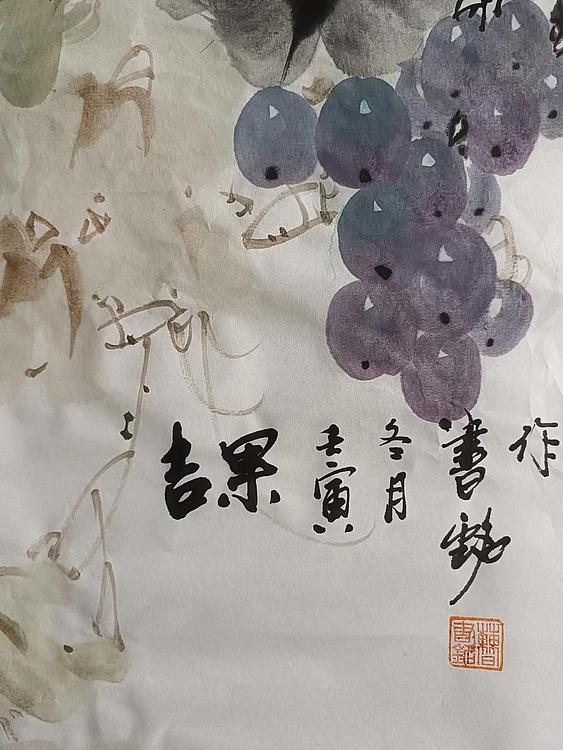 吉果
壬寅
冬月
書
作